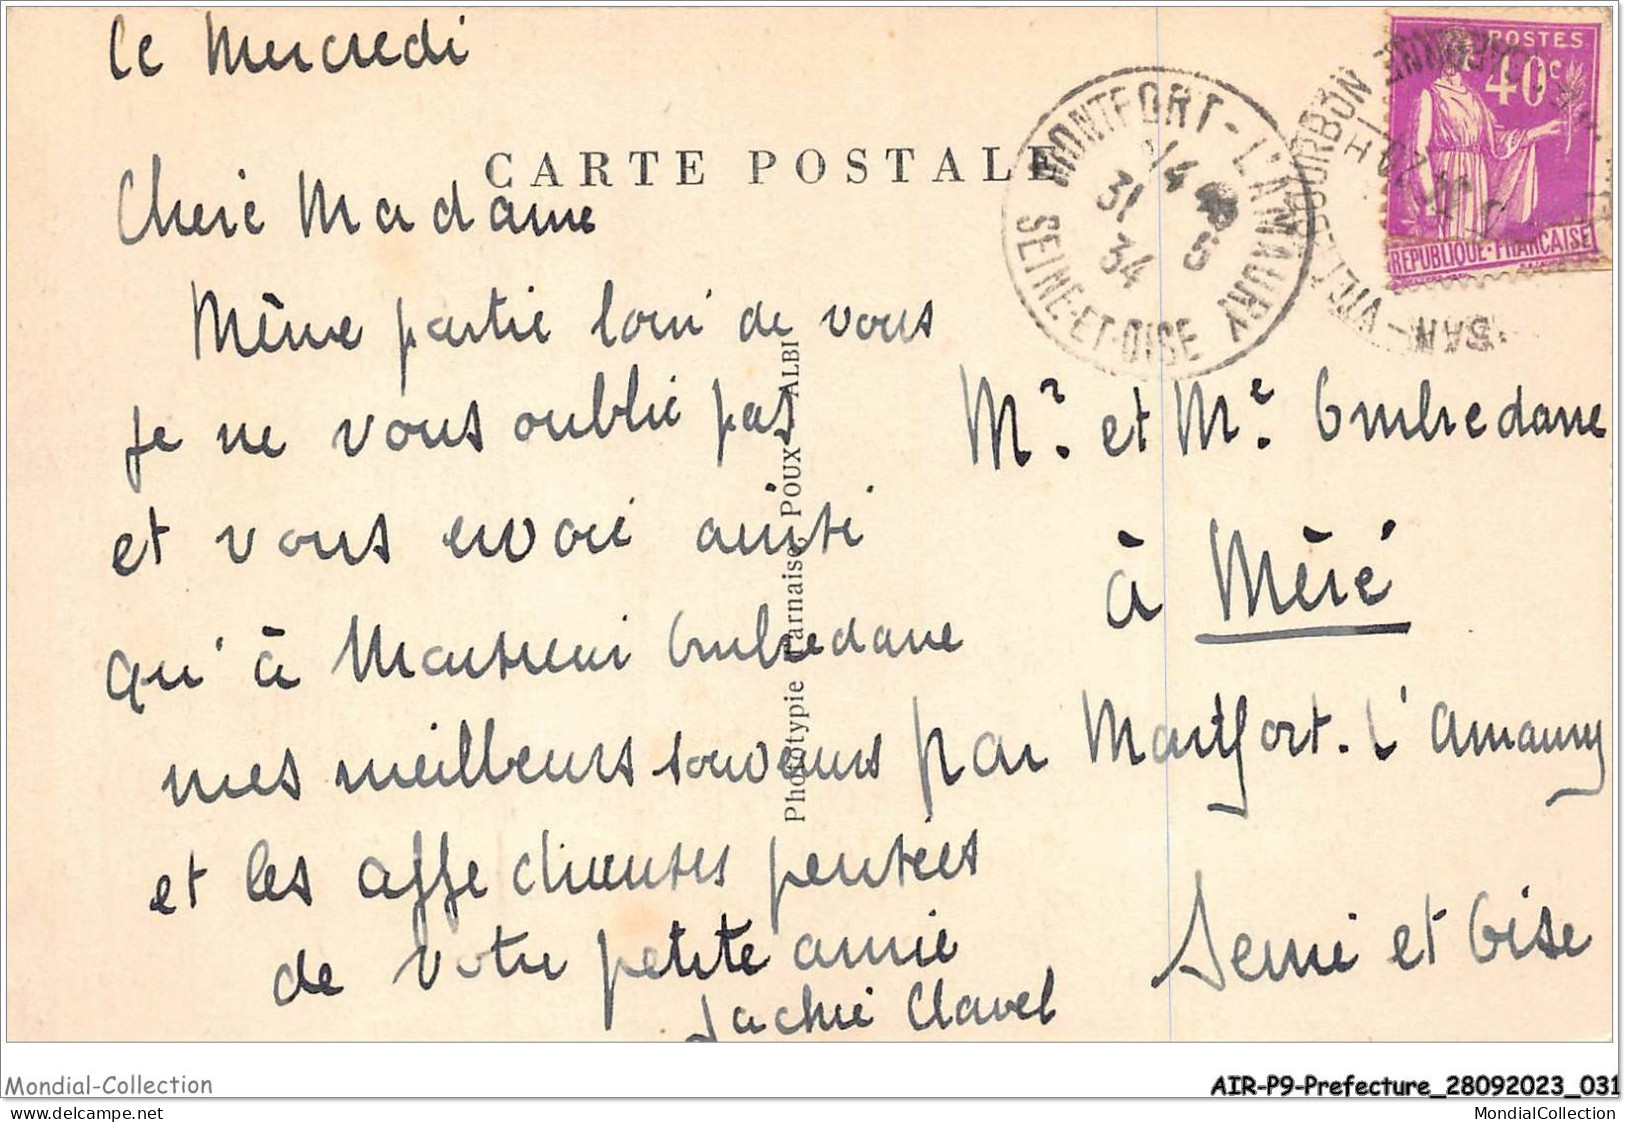 Ce Mercredi
CARTE POSTALE
Chère Madame
Même partie loin de vous
je ne vous oublie pas
et vous envoie ainsi
qu'à Monsieur Ombredane
mes meilleurs souvenirs
et les affectueuses pensées
de votre petite amie
Jackie Clavel
Phototypie Tarnaise, POUX ALBI
MONTFORT-L'AMAURY
14
31 8
34
SEINE-ET-OISE
POSTES
40c
REPUBLIQUE·FRANCAISE
Mr. et Me. Ombredane
à Méré
par Montfort. L'Amaury
Seine et Oise
Mondial-Collection
AIR-P9-Prefecture_28092023_031
delcampe.net
MondialCollection